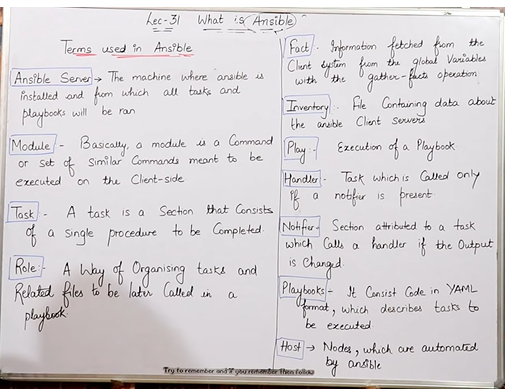 Lec-31 What is (Ansible)
Terms used in Ansible
Ansible Server → The machine where ansible is
installed and from which all tasks and
playbooks will be ran
Module - Basically, a module is a Command
or set of Similar Commands meant to be
executed on the Client-side
Task - A task is a Section that Consists
of a single procedure to be Completed
Role:- A Way of Organising tasks and
Related files to be later Called in a
playbook.
Fact - Information fetched from the
Client system from the global Variables
with the gather-facts operation
Inventory - File Containing data about
the ansible Client Servers
Play:- Execution of a Playbook
Handler - Task which is Called only
if a notifier is present
Notifier - Section attributed to a task
which Calls a handler if the Output
is Changed.
Playbooks - It Consist Code in YAML
format, which describes tasks to
be executed
Host → Nodes, which are automated
by ansible
Try to remember and if you remember then follow